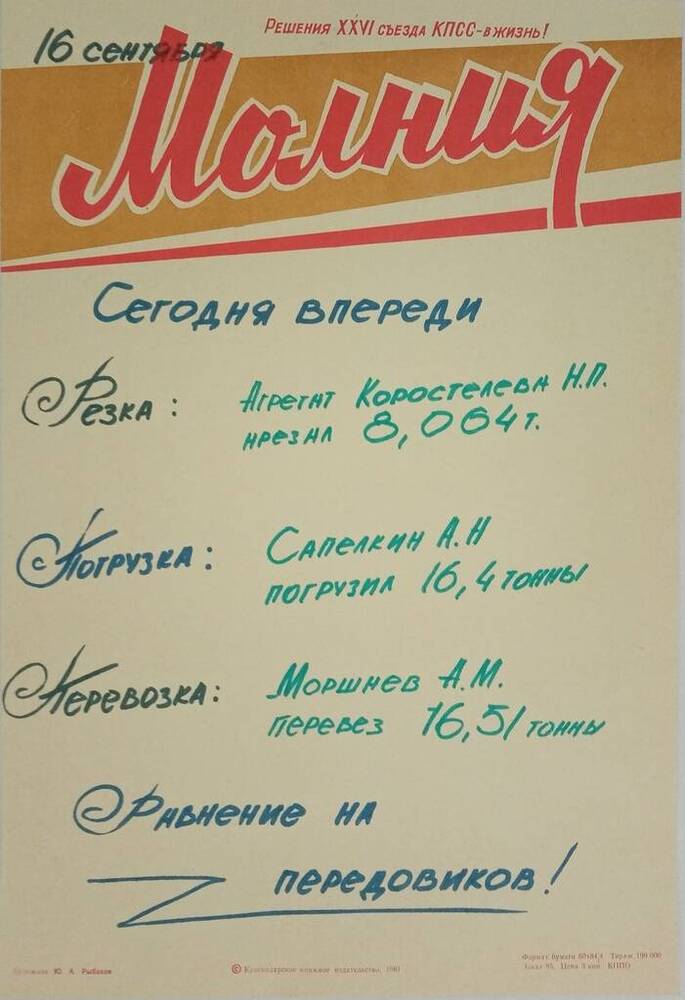 Решения XXVI съезда КПСС-в жизнь!
16 сентября
Молния
Сегодня впереди
Резка:
Агрегат Коростелева Н.П.
нрезал 8,064 т.
Погрузка:
Сапелкин А.Н
погрузил 16,4 тонны
Перевозка:
Моршнев А.М.
перевез 16,51 тонны
Равнение на
передовиков!
Художник Ю. А. Рыбаков
© Краснодарское книжное издательство, 1981
Формат бумаги 60х84/4 Тираж 190 000
Заказ 95. Цена 3 коп КППО